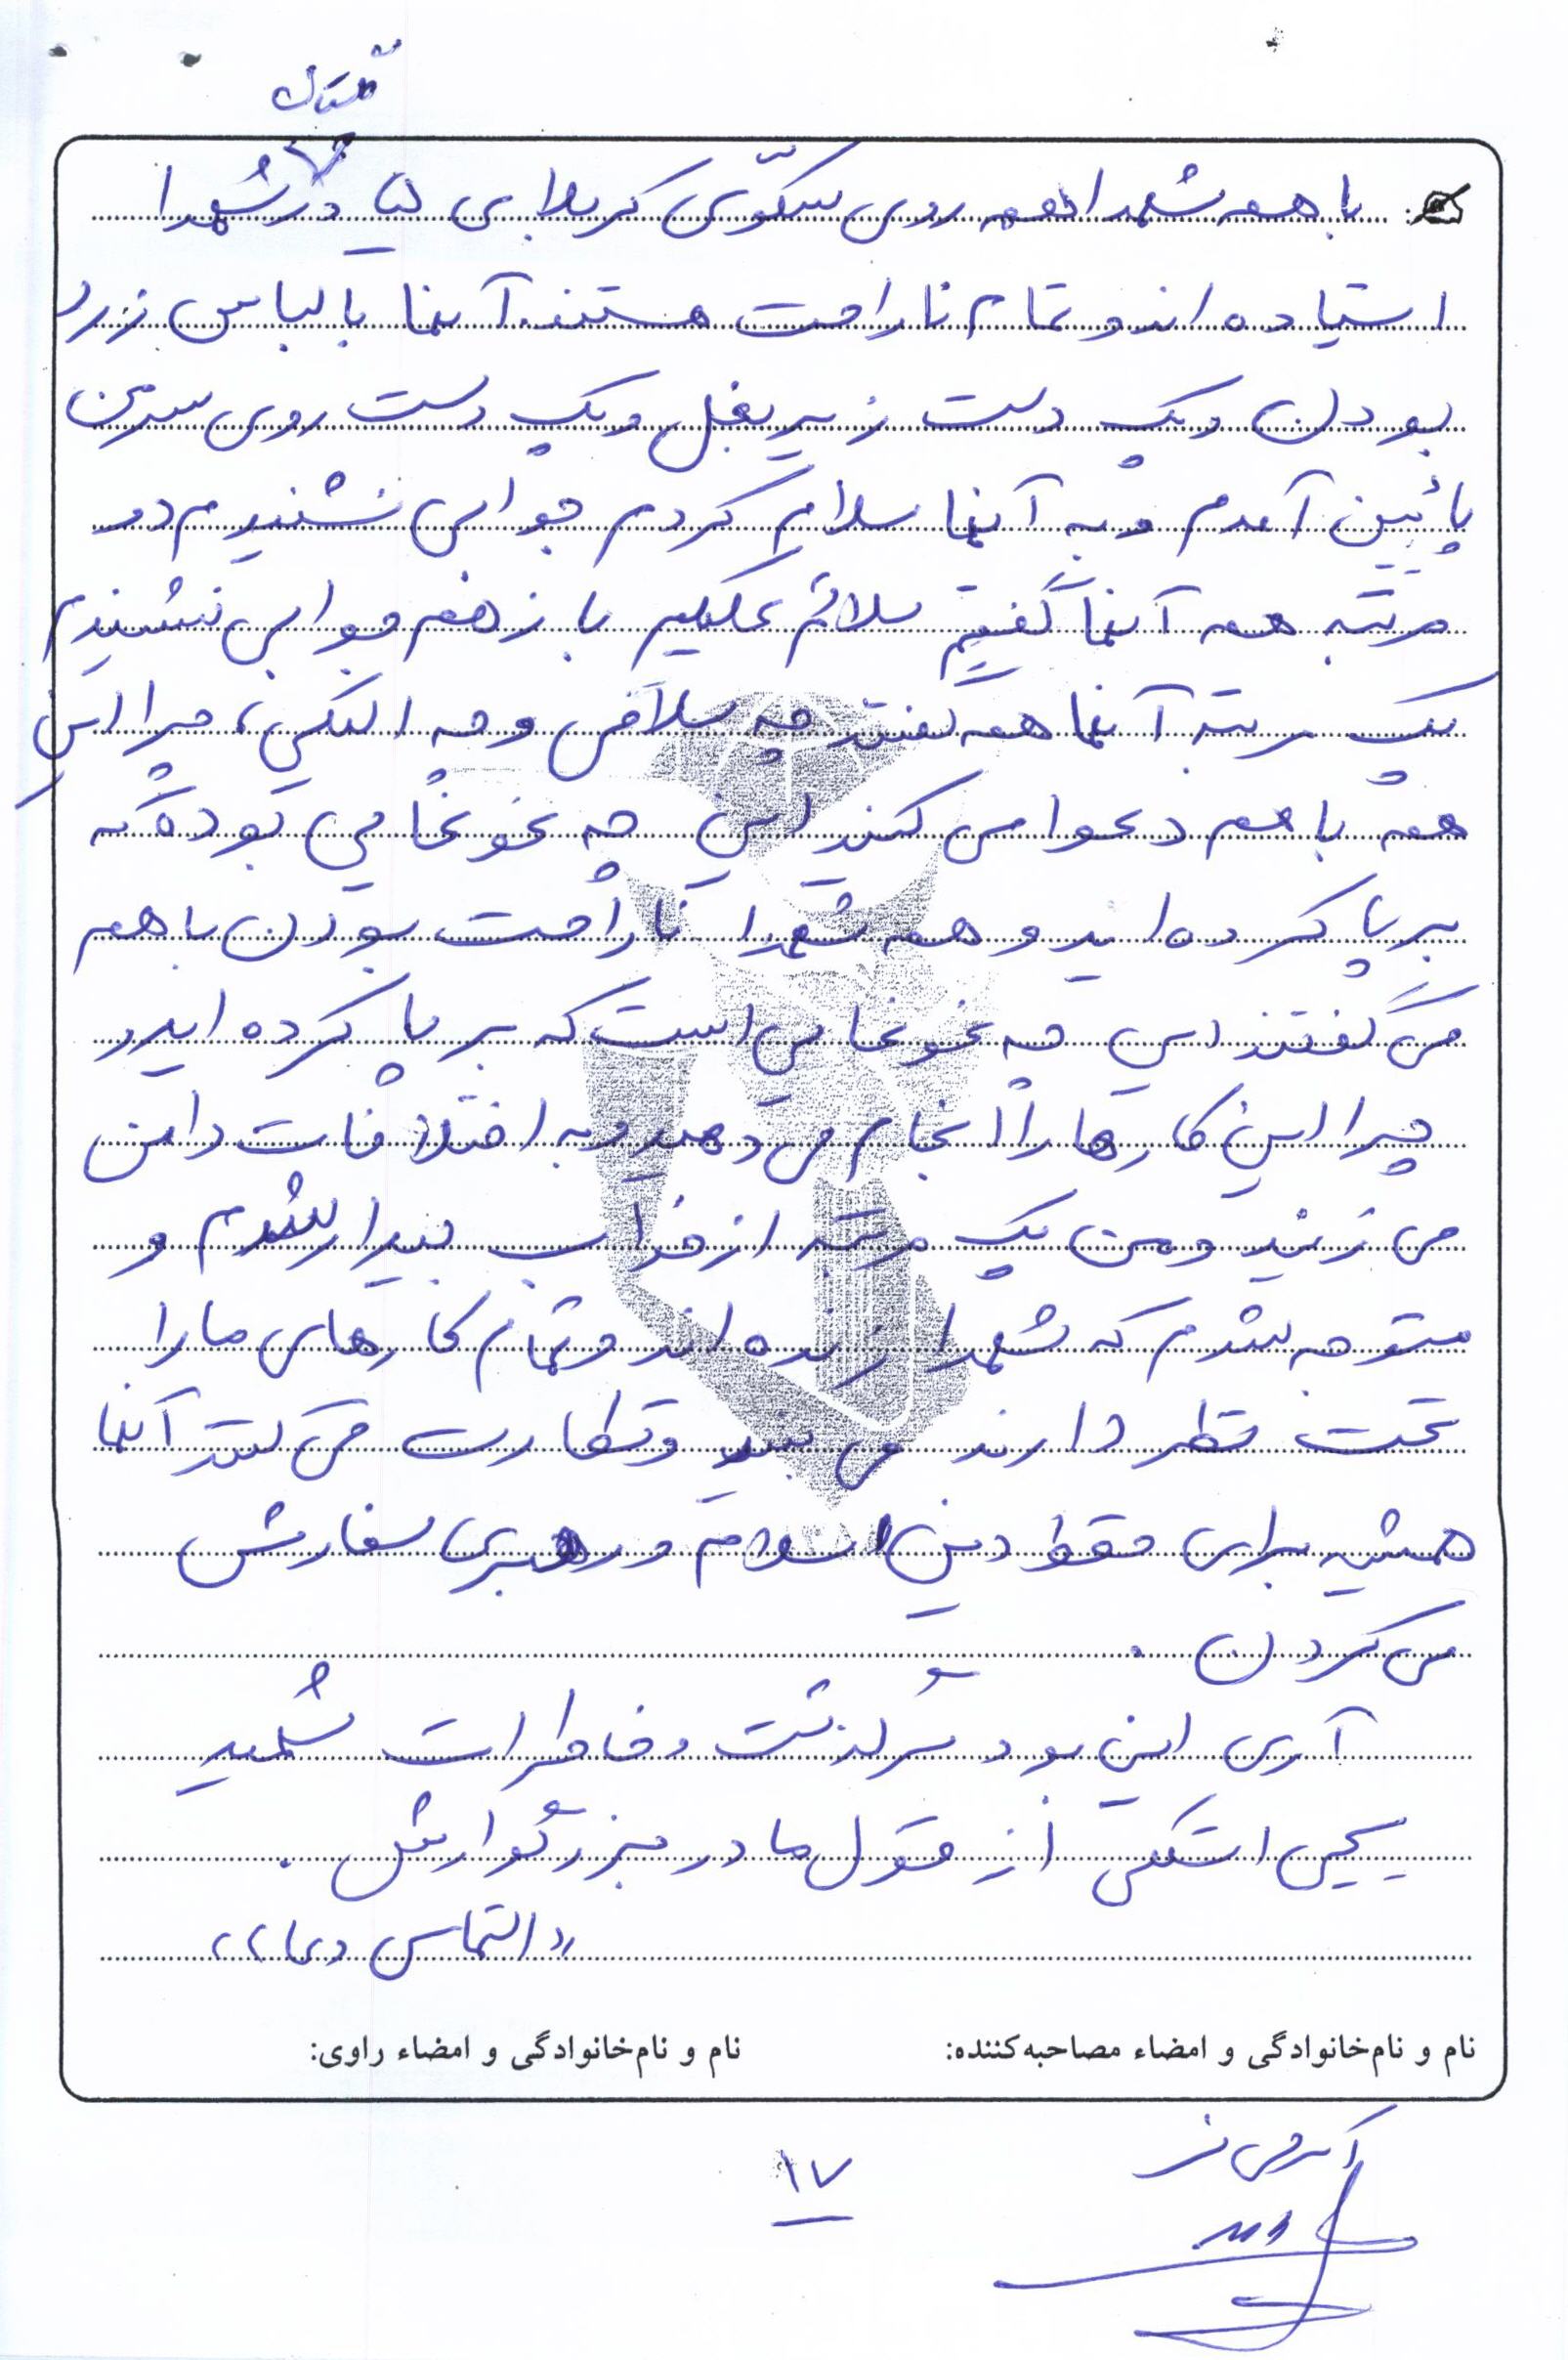 با همه شهدا همه روی سکوّی کربلا ی در شهدا
استیاده اند و تمام ناراحت هستند. آنها با لباس زرد
بودن و یک دست زیر بغل و یک دست روی سر من
پائین آمدم و به آنها سلام کردم جوابی نشنیدم دو
مرتبه همه آنها گفتیم سلام علیکم باز هم جوابی نشنیدم
یک مرتبه آنها همه گفتند چه سلامی و چه الیکی، چرا این
همه با هم دعوا می کنید این چه غوغایی بوده که
بر پا کرده اید و همه شهدا ناراحت بودن با هم
می گفتند این چه غوغایی است که بر پا کرده اید و
چرا این کارها را انجام می دهید و به اختلافات دامن
می زنید و من یک مرتبه از خواب بیدار شدم و
متوجه شدم که شهدا زنده اند و تمام کارهای ما را
تحت نظر دارند می بینند و نظارت می کنند آنها
همیشه برای حفظ دین اسلام و رهبری سفارش
می کردن.
آری این بود سرگذشت و خاطرات شهید
یحیی اشکی از قول مادر بزرگوارش.
«التماس دعا»
نام و نام‌خانوادگی و امضاء مصاحبه‌کننده: نام و نام‌خانوادگی و امضاء راوی:
۱۷